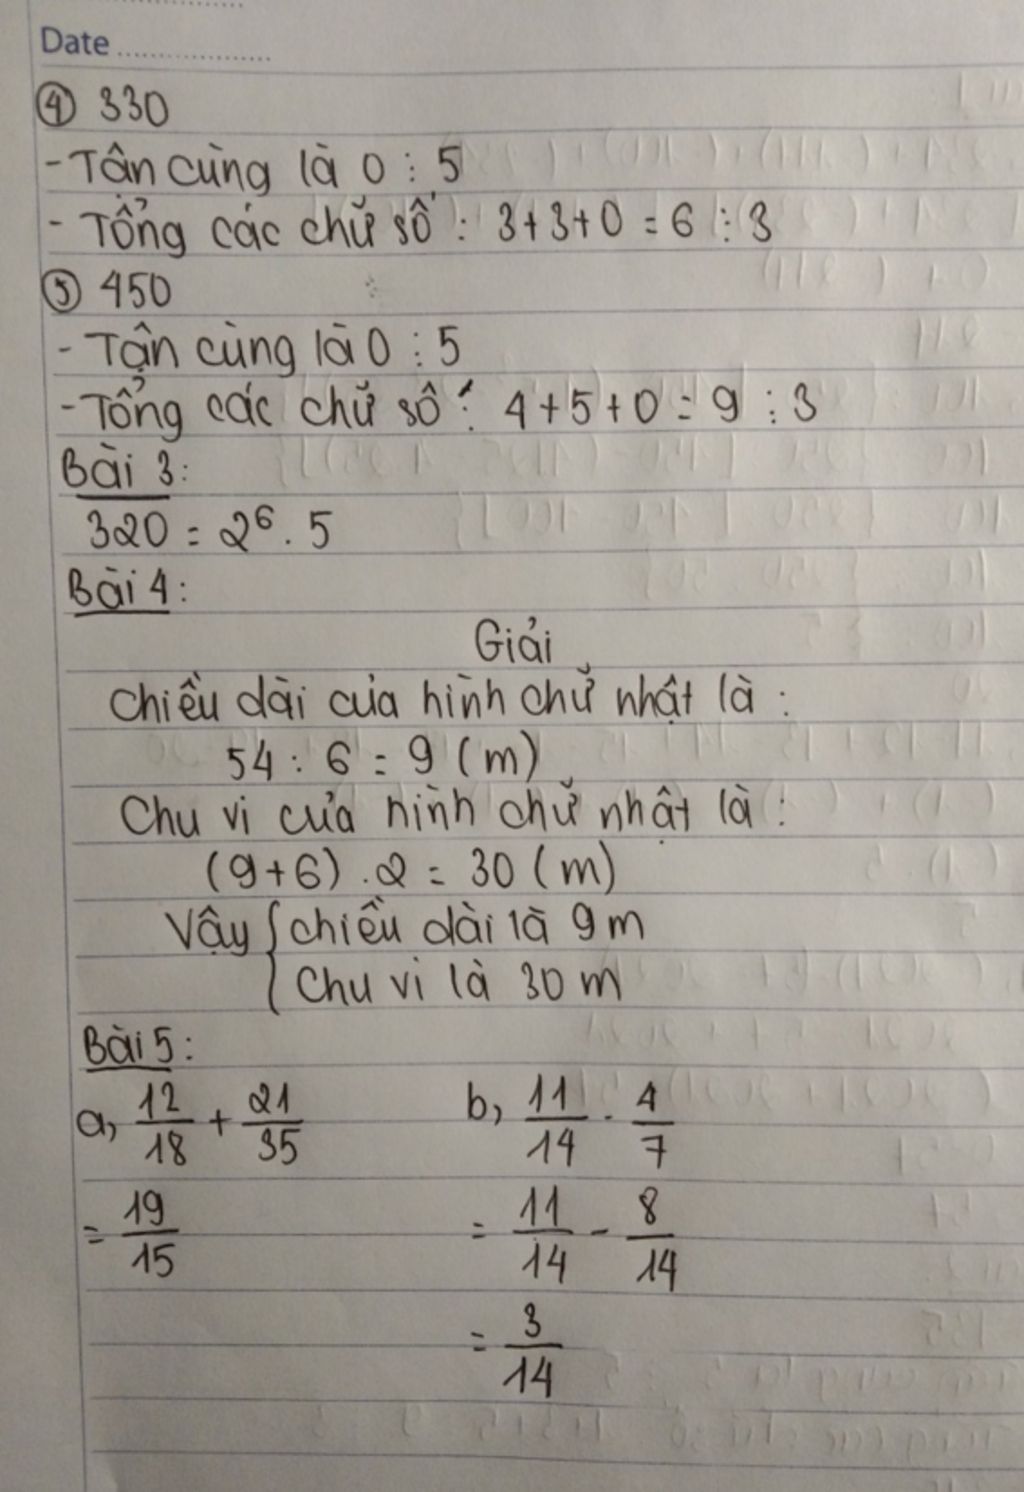 Date
④ 330
- Tận cùng là 0 ⋮ 5
- Tổng các chữ số: 3+3+0 = 6 ⋮ 3
⑤ 450
- Tận cùng là 0 ⋮ 5
- Tổng các chữ số: 4+5+0 = 9 ⋮ 3
Bài 3:
320 = 2⁶ . 5
Bài 4:
Giải
Chiều dài của hình chữ nhật là:
54 : 6 = 9 (m)
Chu vi của hình chữ nhật là:
(9+6) . 2 = 30 (m)
Vậy { chiều dài là 9m
Chu vi là 30 m
Bài 5:
a, 12/18 + 21/35 b, 11/14 - 4/7
= 19/15 = 11/14 - 8/14
= 3/14